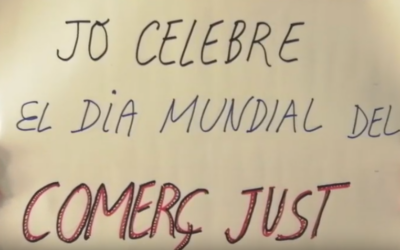 JO CELEBRE
EL DIA MUNDIAL DEL
COMERÇ JUST